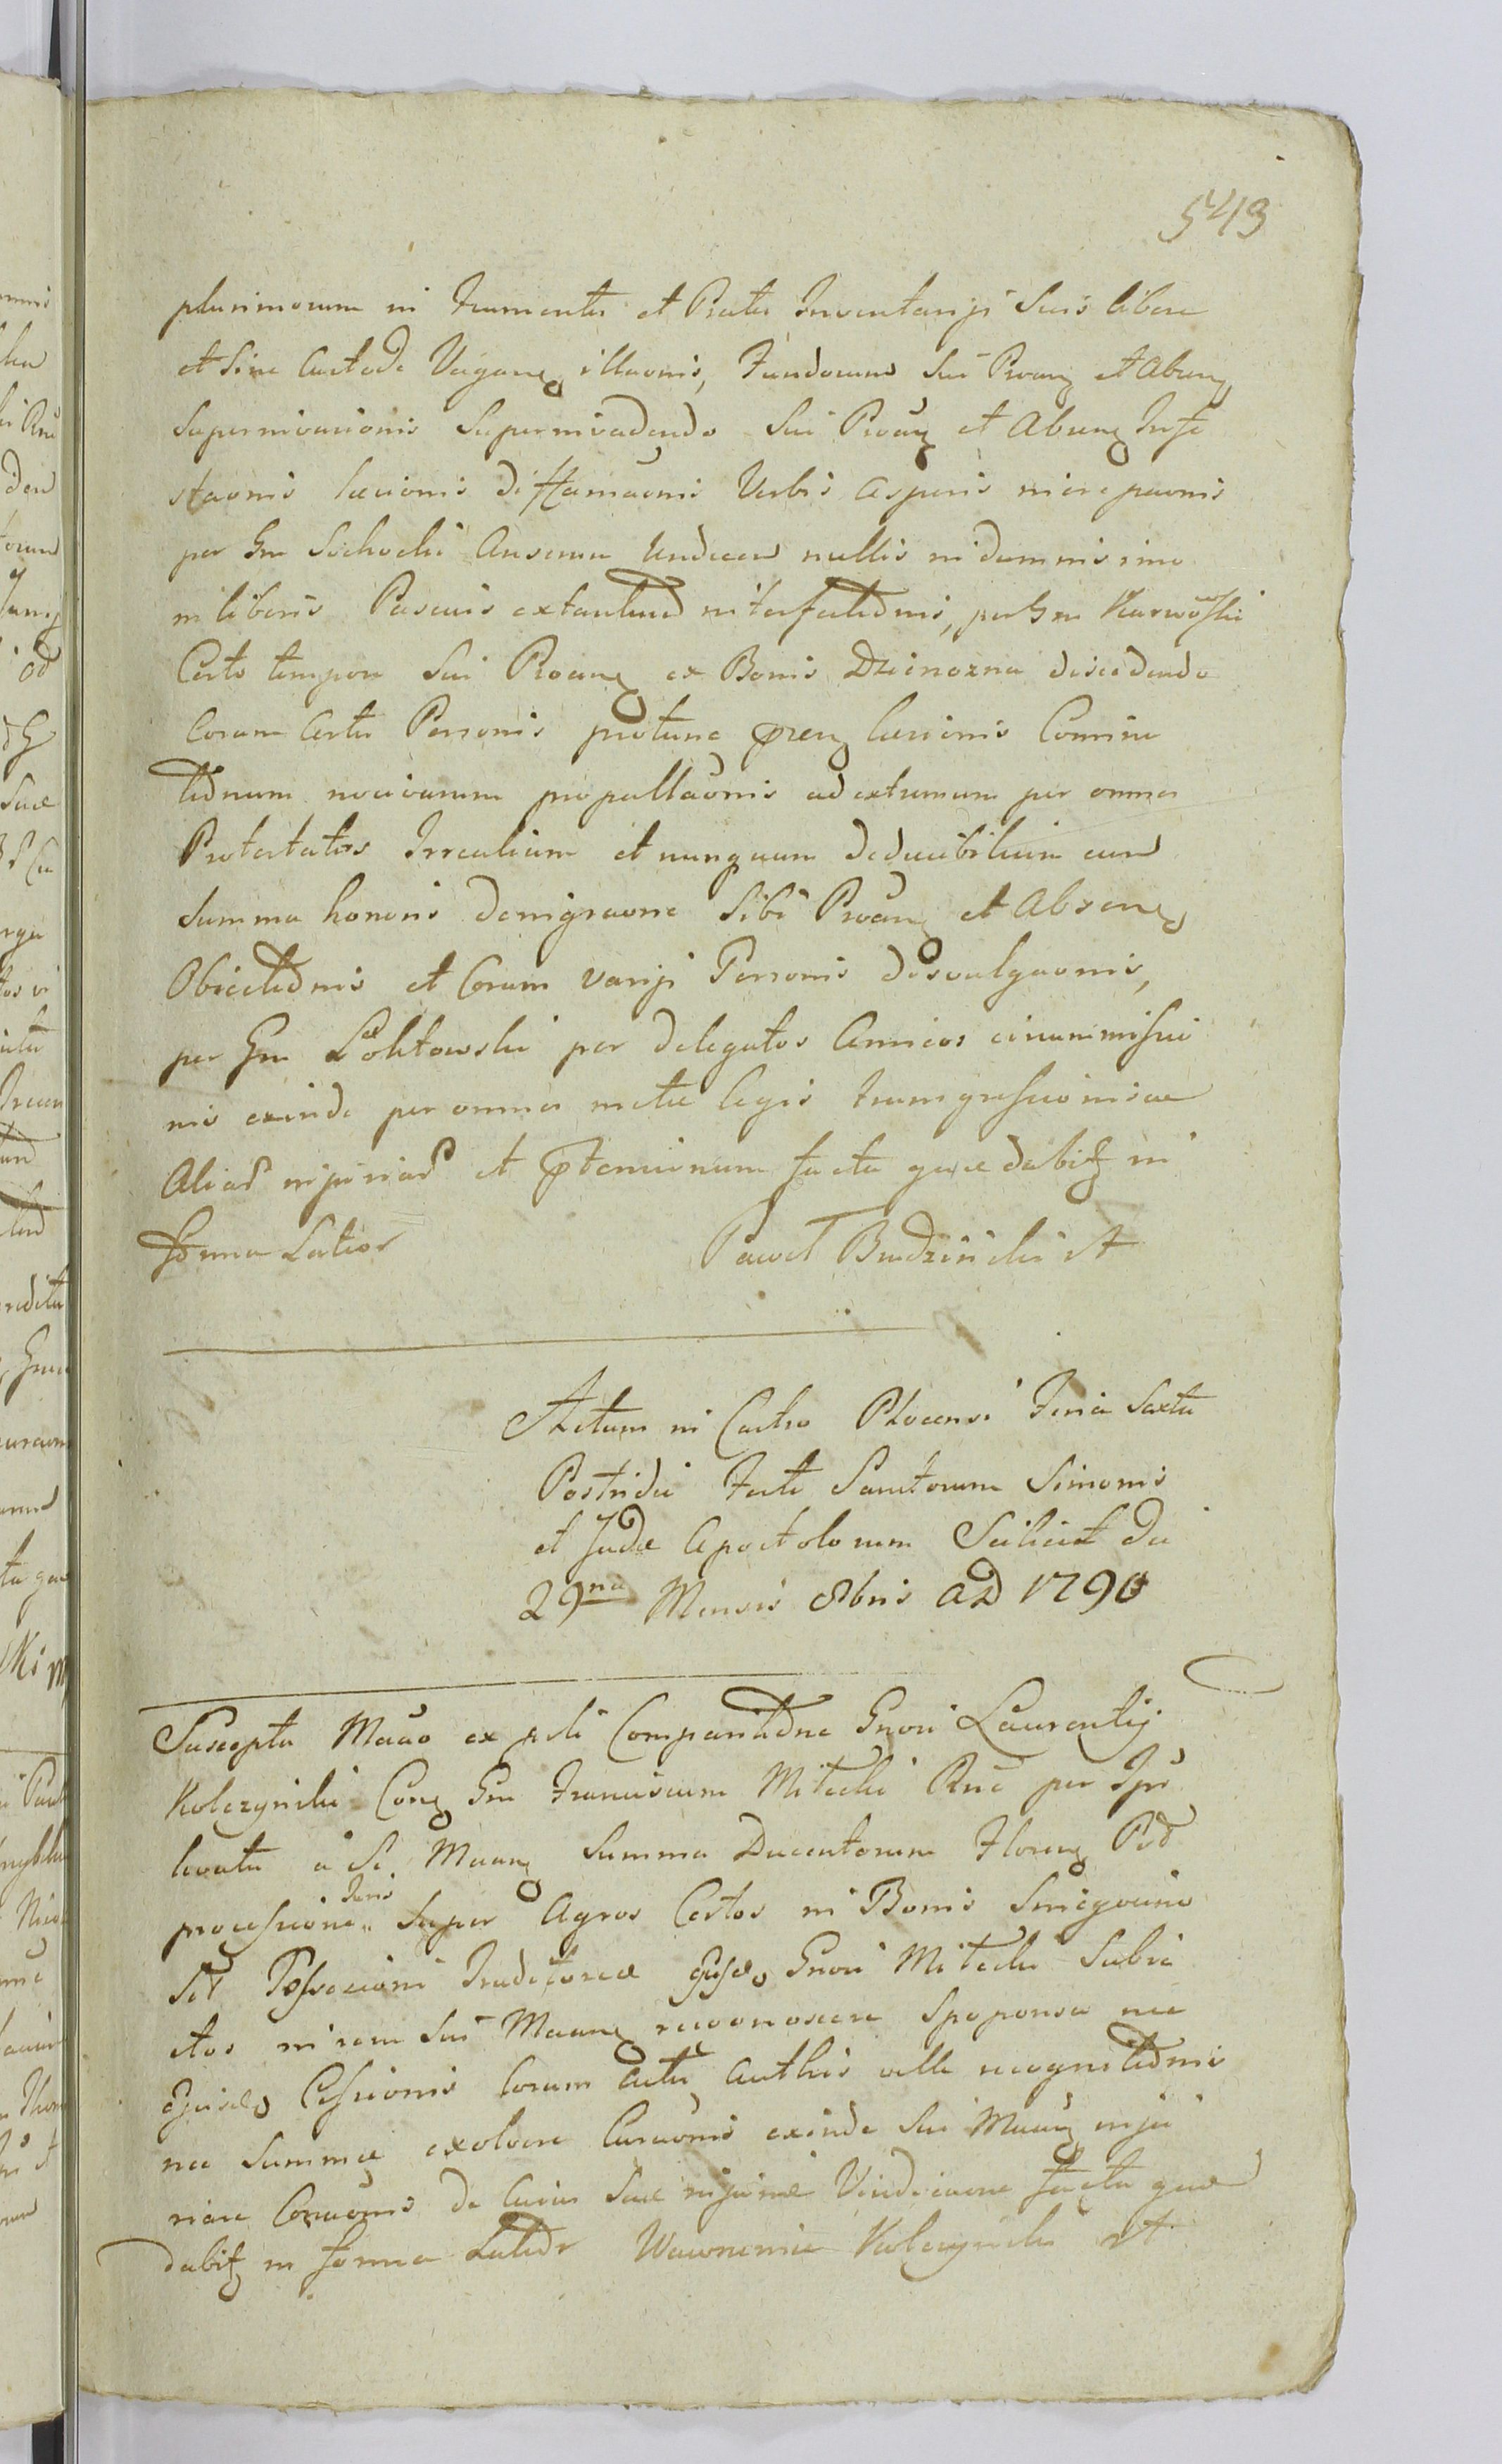 543
plurimorum in frumentis et Pratis Inventarijs suis libere
et sine Custode Vagan illaonis, Fundorum sui Proan et Absen
superinvasionis superinvadendo sui Proan et Absen Infe
staonis laesionis diffamaonis Verbis asperis increpaonis
per Gm Sochocki Anserum Undecem nullis in damnis imo
in liberis Pascuis extantium interfectionis, per Gm Karwoski
Certo tempore sui Proan ex Bonis Dzierozna discedendo
Coram Certis Personis protunc pren laesionis Commina
tionum nocivarum propallaonis ad extremum per omnes
Protestatos Irrealium et nunquam deducibilium cum
summa honoris denigraone sibi Proan et Absen
Obiectionis et Coram varijs Personis disvulgaonis,
per Gm Zoltowski per delegatos Amicos circummissio
nis exinde per omnes metae legis transgressionisque
Alias injurias et ptensionum facta quae dabit in
forma Latior Paweł Budzinski A
Actum in Castro Plocensi Feria Sexta
Postridie Festi Sanctorum Simonis
et Judae Apostolorum Scilicet die
29na Mensis 8bris AD 1790
Suscepta Maao ex psli Comparitione Gnosi Laurentij
Kolczynski Con Gm Franciscum Mitecki Rne per Ipm
levatae a se Maan summae Ducentorum Floren Pol
processione Juris super Agros Certos in Bonis Smiegocino
Stt Possessioni Traditoriae ejusd Gnosi Mitecki Subie
ctos in rem sui Maan recognoscere spoponsae nec
ejusd Cessionis Coram Actis Authis velle recognitionis
nec summae exolvere Curaonis exinde sui Maan inju
riare Conaonis de Cuius suae injuriae Vindicaone facta quae
dabit in forma Latior Wawrzeniec Kolczynski A